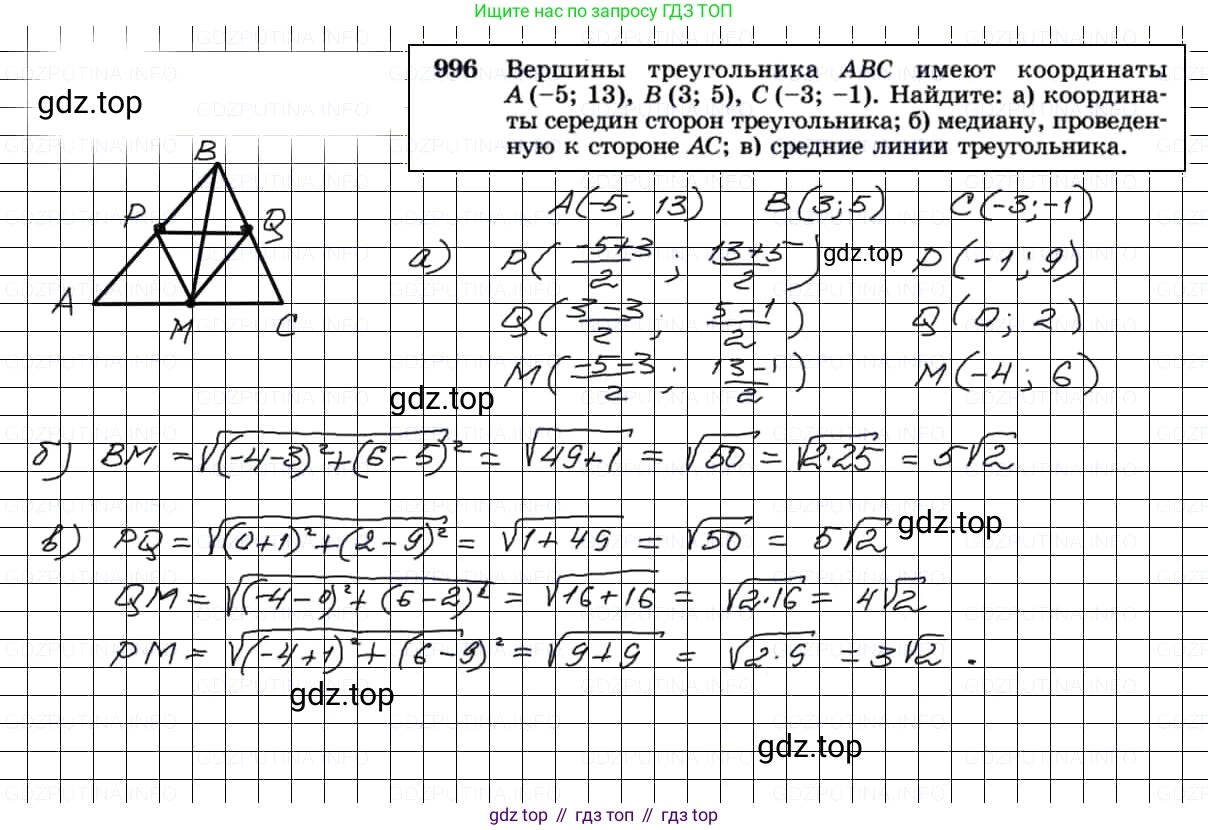 Ищите нас по запросу ГДЗ ТОП
996 Вершины треугольника ABC имеют координаты
A (−5; 13), B (3; 5), C (−3; −1). Найдите: а) координа-
ты середин сторон треугольника; б) медиану, проведен-
ную к стороне AC; в) средние линии треугольника.
gdz.top
B
P
Q
A
M
C
A(-5; 13) B(3; 5) C(-3; -1)
а) P((-5+3)/2; (13+5)/2) gdz.top P(-1; 9)
Q((3-3)/2; (5-1)/2) Q(0; 2)
M((-5-3)/2; (13-1)/2) M(-4; 6)
gdz.top
б) BM = √((-4-3)²+(6-5)²) = √(49+1) = √50 = √(2·25) = 5√2
в) PQ = √((0+1)²+(2-9)²) = √(1+49) = √50 = 5√2
gdz.top
QM = √((-4-0)²+(6-2)²) = √(16+16) = √(2·16) = 4√2
PM = √((-4+1)²+(6-9)²) = √(9+9) = √(2·9) = 3√2.
gdz.top
gdz.top
gdz top // гдз топ // gdz top
GDZPUTINA.INFO